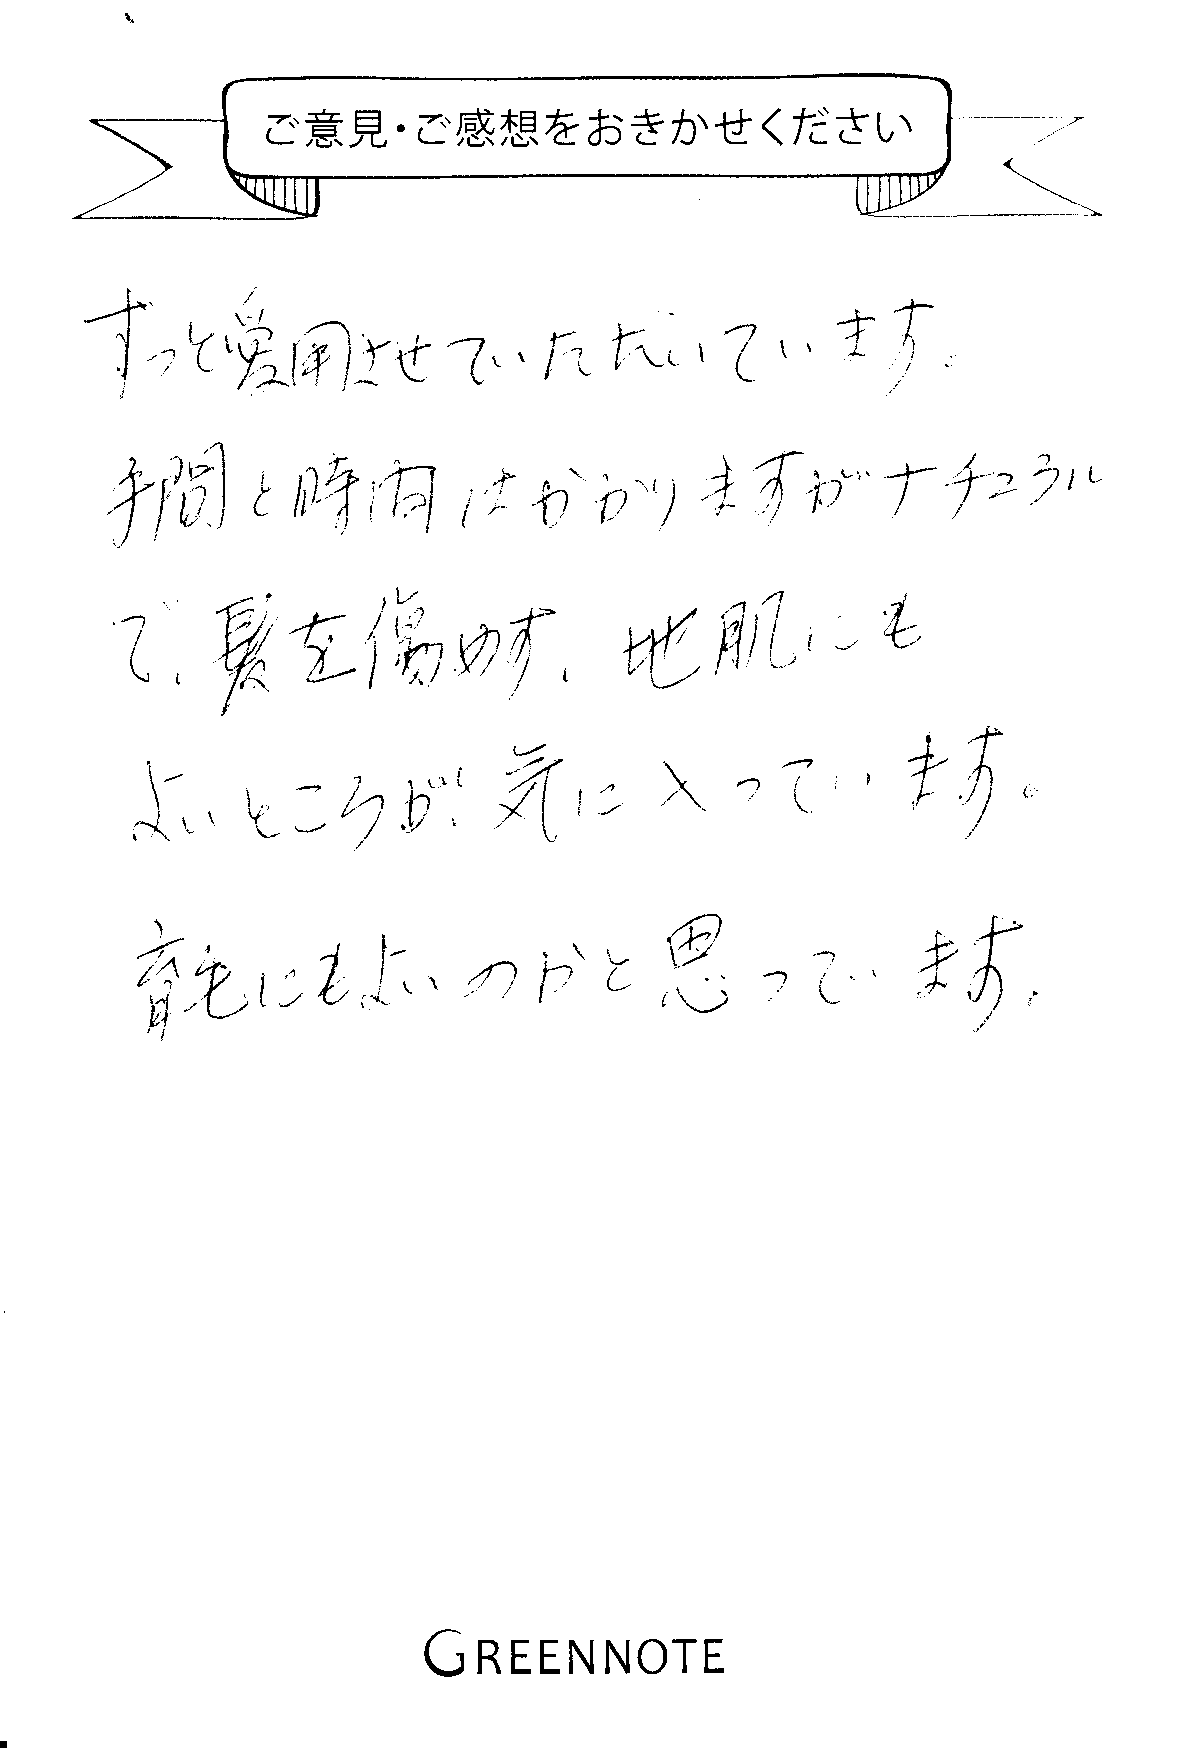 ご意見・ご感想をおきかせください
ずっと愛用させていただいています。
手間と時間はかかりますがナチュラル
で、髪を傷めず、地肌にも
よいところが、気に入っています。
育毛にもよいのかと思っています。
GREENNOTE